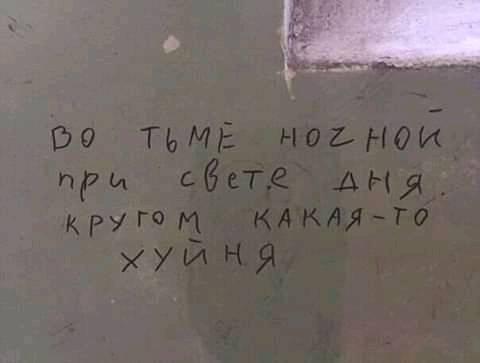 во тьме ночной
при свете дня
кругом какая-то
хуйня